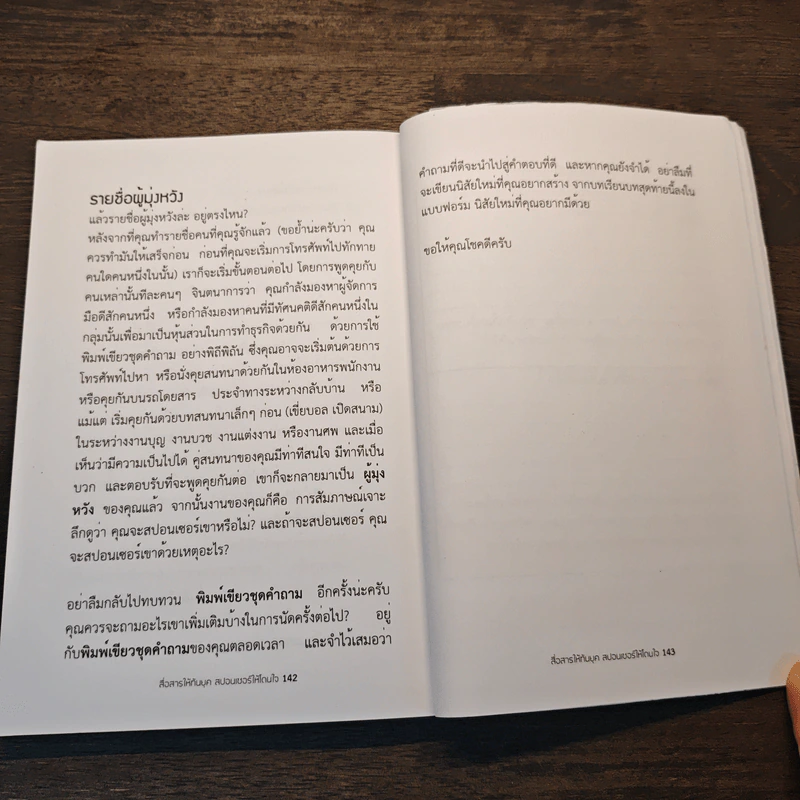 รายชื่อผู้มุ่งหวัง
แล้วรายชื่อผู้มุ่งหวังล่ะ อยู่ตรงไหน?
หลังจากที่คุณทำรายชื่อคนที่คุณรู้จักแล้ว (ขอย้ำน่ะครับว่า คุณ
ควรทำมันให้เสร็จก่อน ก่อนที่คุณจะเริ่มการโทรศัพท์ไปทักทาย
คนใดคนหนึ่งในนั้น) เราก็จะเริ่มขั้นตอนต่อไป โดยการพูดคุยกับ
คนเหล่านั้นทีละคนๆ จินตนาการว่า คุณกำลังมองหาผู้จัดการ
มือดีสักคนหนึ่ง หรือกำลังมองหาคนที่มีทัศนคติดีสักคนหนึ่งใน
กลุ่มนั้นเพื่อมาเป็นหุ้นส่วนในการทำธุรกิจด้วยกัน ด้วยการใช้
พิมพ์เขียวชุดคำถาม อย่างพิถีพิถัน ซึ่งคุณอาจจะเริ่มต้นด้วยการ
โทรศัพท์ไปหา หรือนั่งคุยสนทนาด้วยกันในห้องอาหารพนักงาน
หรือคุยกันบนรถโดยสาร ประจำทางระหว่างกลับบ้าน หรือ
แม้แต่ เริ่มคุยกันด้วยบทสนทนาเล็กๆ ก่อน (เขี่ยบอล เปิดสนาม)
ในระหว่างงานบุญ งานบวช งานแต่งงาน หรืองานศพ และเมื่อ
เห็นว่ามีความเป็นไปได้ คู่สนทนาของคุณมีท่าทีสนใจ มีท่าทีเป็น
บวก และตอบรับที่จะพูดคุยกันต่อ เขาก็จะกลายมาเป็น ผู้มุ่ง
หวัง ของคุณแล้ว จากนั้นงานของคุณก็คือ การสัมภาษณ์เจาะ
ลึกดูว่า คุณจะสปอนเซอร์เขาหรือไม่? และถ้าจะสปอนเซอร์ คุณ
จะสปอนเซอร์เขาด้วยเหตุอะไร?
อย่าลืมกลับไปทบทวน พิมพ์เขียวชุดคำถาม อีกครั้งน่ะครับ
คุณควรจะถามอะไรเขาเพิ่มเติมบ้างในการนัดครั้งต่อไป? อยู่
กับพิมพ์เขียวชุดคำถามของคุณตลอดเวลา และจำไว้เสมอว่า
สื่อสารให้ทันยุค สปอนเซอร์ให้โดนใจ 142
คำถามที่ดีจะนำไปสู่คำตอบที่ดี และหากคุณยังจำได้ อย่าลืมที่
จะเขียนนิสัยใหม่ที่คุณอยากสร้าง จากบทเรียนบทสุดท้ายนี้ลงใน
แบบฟอร์ม นิสัยใหม่ที่คุณอยากมีด้วย
ขอให้คุณโชคดีครับ
สื่อสารให้ทันยุค สปอนเซอร์ให้โดนใจ 143